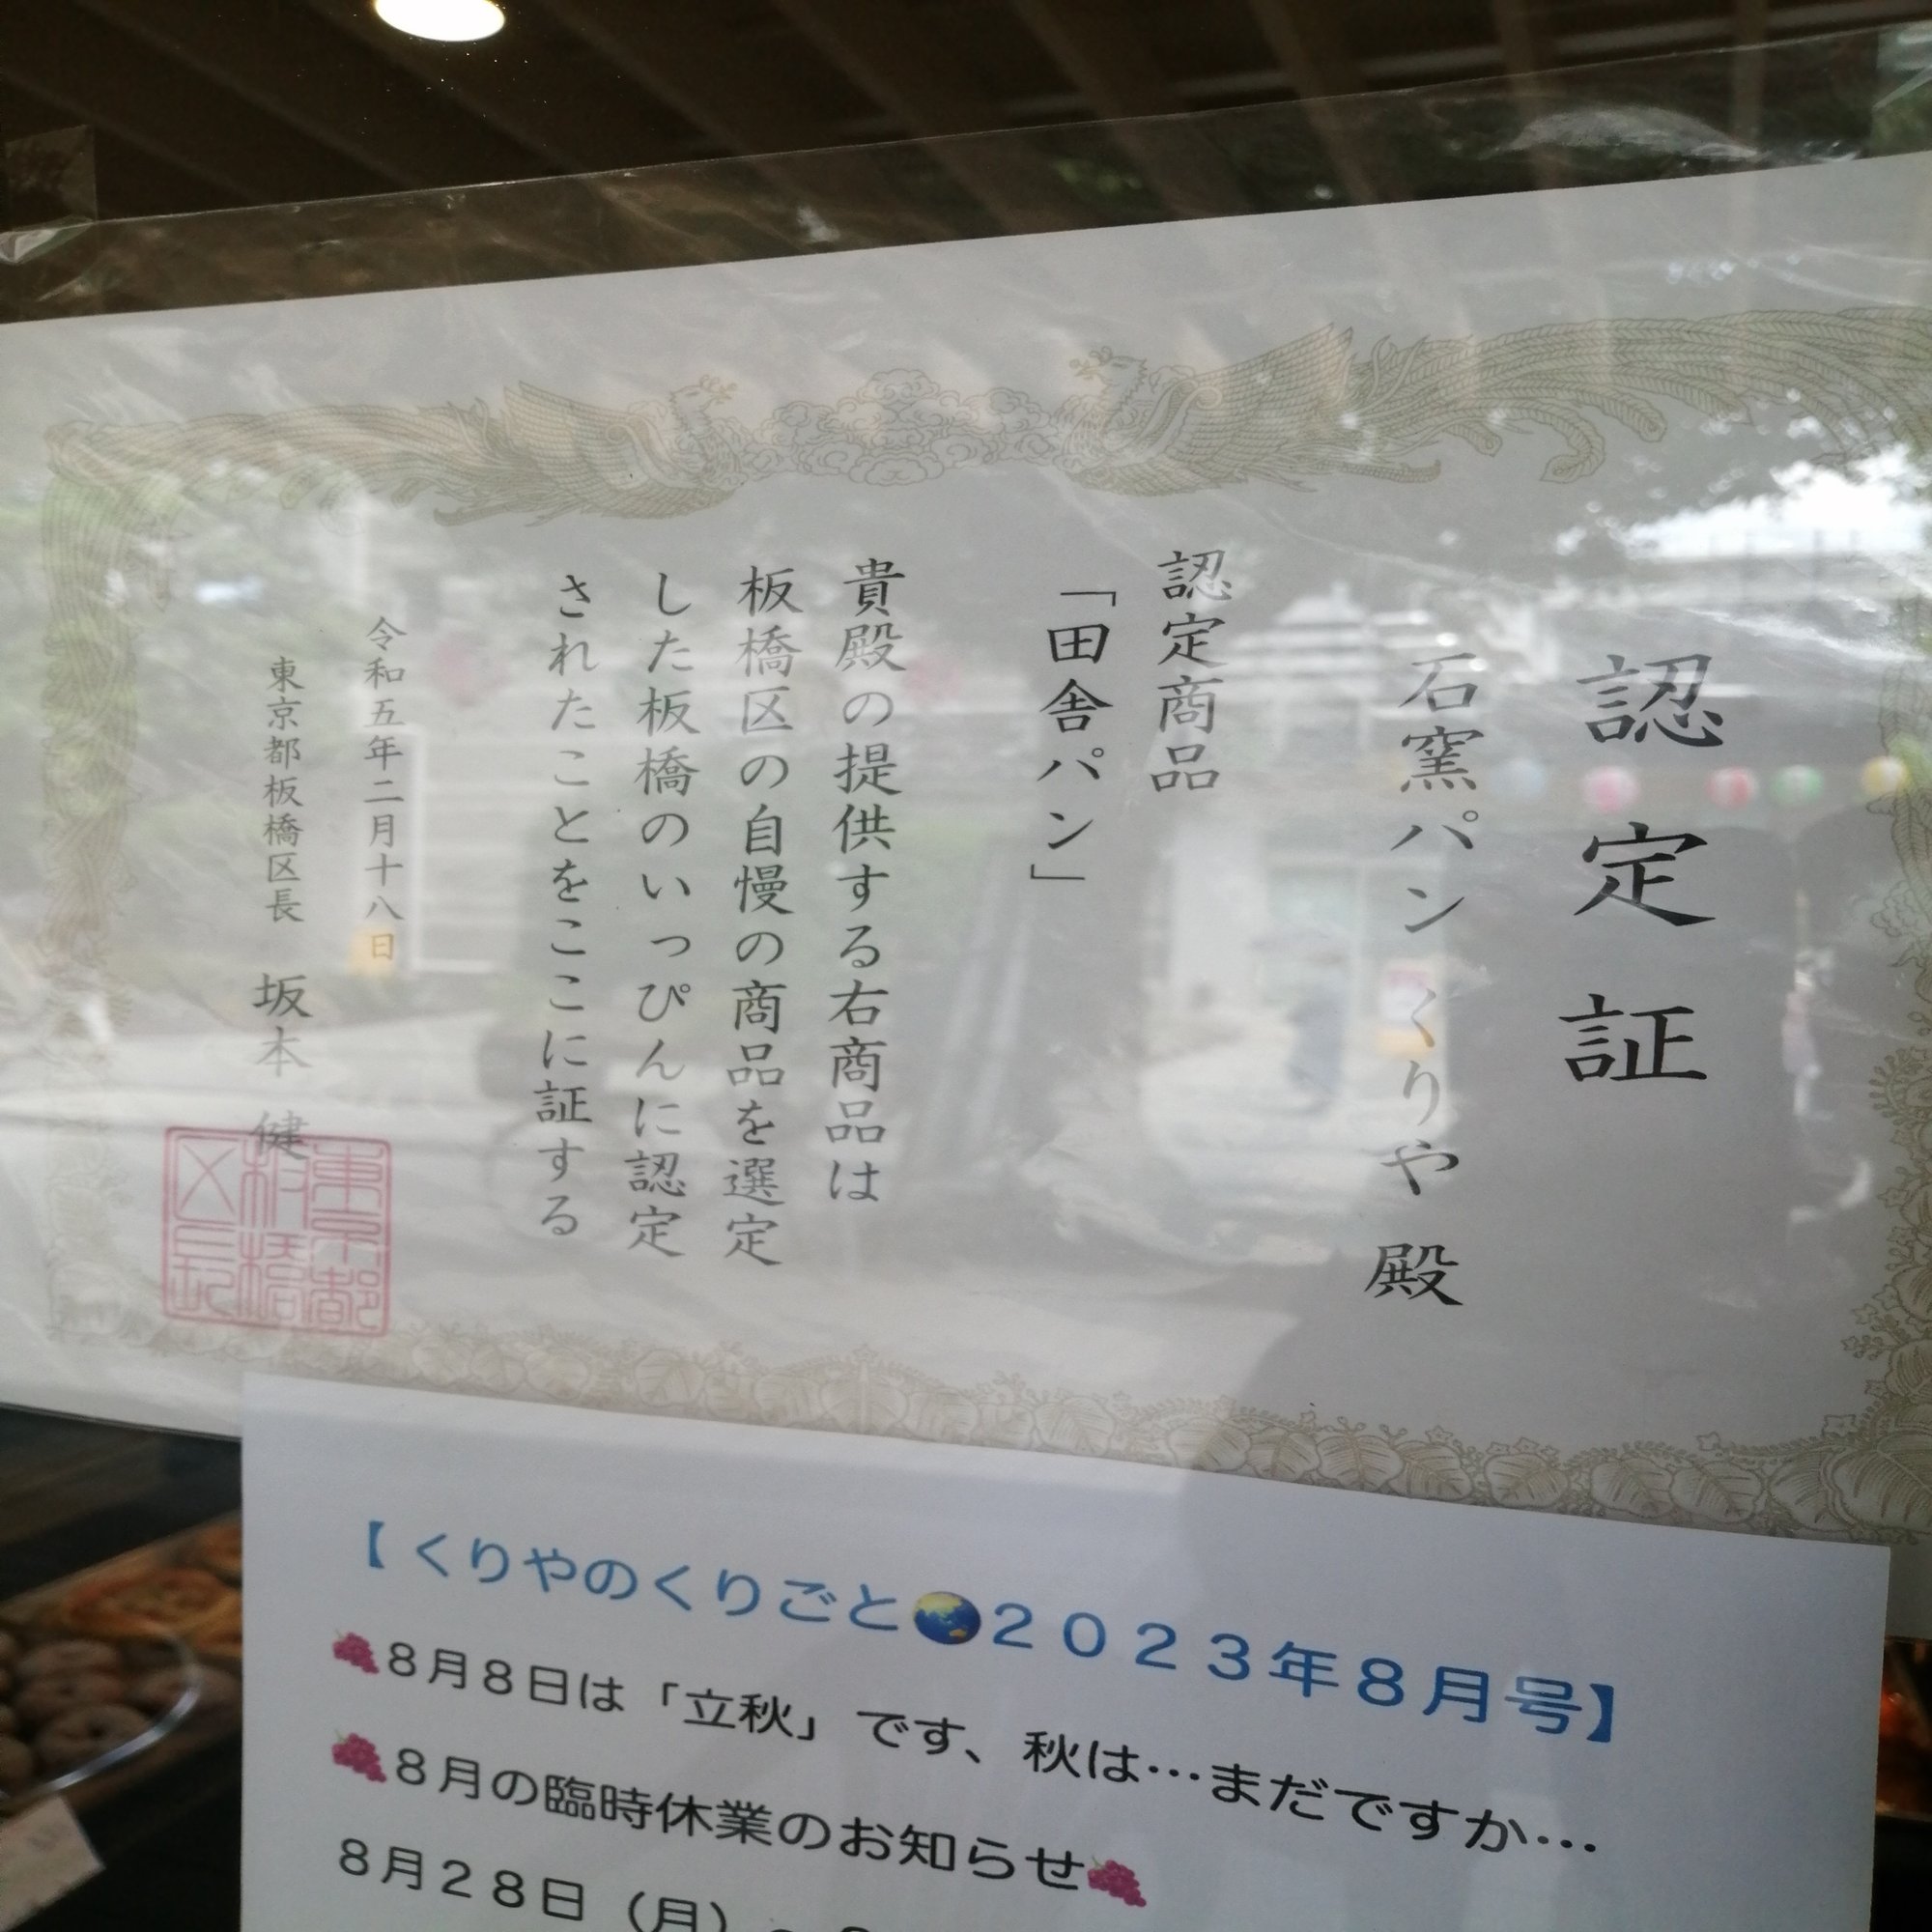 認定証
石窯パン くりや 殿
認定商品
「田舎パン」
貴殿の提供する右商品は
板橋区の自慢の商品を選定
した板橋のいっぴんに認定
されたことをここに証する
令和五年二月十八日
東京都板橋区長 坂本 健
東京都
板橋
区長
【くりやのくりごと🌏２０２３年８月号】
🍇８月８日は「立秋」です、秋は…まだですか…
🍇８月の臨時休業のお知らせ🍇
８月２８日（月）